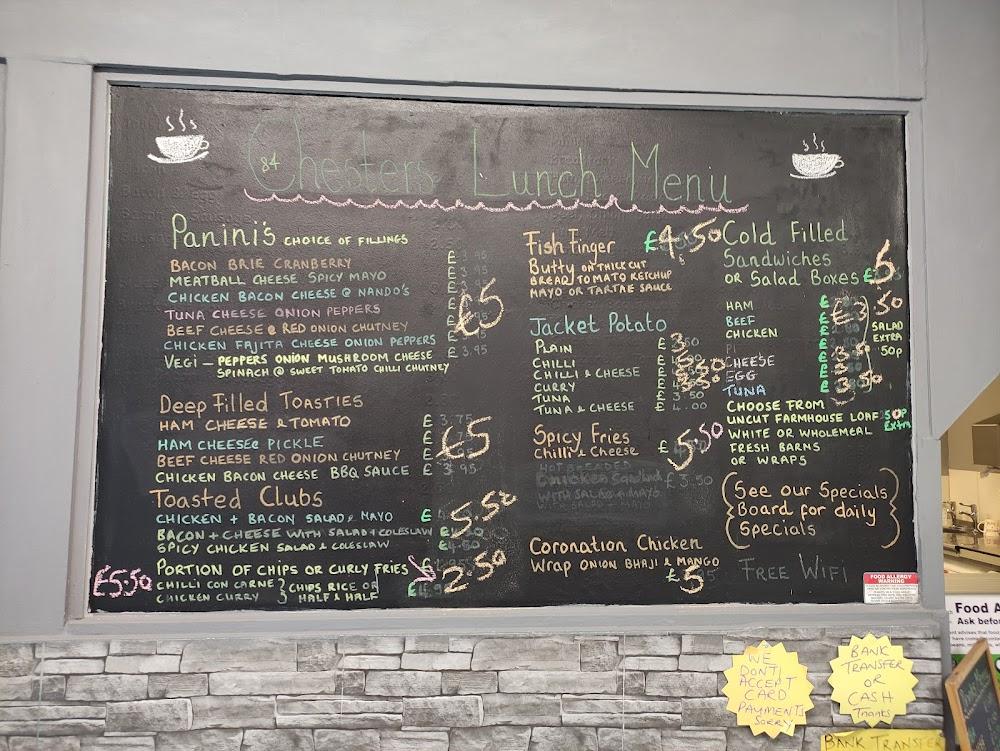 84 Chesters Lunch Menu
Panini's CHOICE OF FILLINGS
BACON BRIE CRANBERRY
MEATBALL CHEESE SPICY MAYO
CHICKEN BACON CHEESE @ NANDO'S
TUNA CHEESE ONION PEPPERS
BEEF CHEESE @ RED ONION CHUTNEY
CHICKEN FAJITA CHEESE ONION PEPPERS
£ 3.95
VEGI - PEPPERS ONION MUSHROOM CHEESE
SPINACH @ SWEET TOMATO CHILLI CHUTNEY
£5
DEEP FILLED TOASTIES
HAM CHEESE & TOMATO £ 3.75
HAM CHEESE @ PICKLE £
BEEF CHEESE RED ONION CHUTNEY £
CHICKEN BACON CHEESE BBQ SAUCE £ 3.95
£5
TOASTED CLUBS
CHICKEN + BACON SALAD & MAYO £
BACON + CHEESE WITH SALAD + COLESLAW £
SPICY CHICKEN SALAD & COLESLAW £4.50
5.50
PORTION OF CHIPS OR CURLY FRIES £
2.50
£5.50 CHILLI CON CARNE } CHIPS RICE OR
CHICKEN CURRY } HALF & HALF
Fish Finger £4.50
Butty ON THICK CUT
BREAD TOMATO KETCHUP
MAYO OR TARTAR SAUCE
JACKET POTATO
PLAIN £ 3.50
CHILLI £
CHILLI & CHEESE £ 5.50
CURRY £
TUNA £ 3.50
TUNA & CHEESE £ 4.00
SPICY FRIES
Chilli & Cheese £ 5.50
HOT BREADED
Chicken Sandwich £ 3.50
WITH SALAD & MAYO
CORONATION CHICKEN
WRAP ONION BHAJI & MANGO
£5
Cold Filled
Sandwiches
OR SALAD BOXES £5
HAM £
BEEF £
CHICKEN £
£3.50
CHEESE £
EGG £
TUNA £
3.50
SALAD
EXTRA
50p
CHOOSE FROM
UNCUT FARMHOUSE LOAF 50p Extra
WHITE OR WHOLEMEAL
FRESH BARNS
OR WRAPS
See our Specials
Board for daily
Specials
FREE WIFI
FOOD ALLERGY
WARNING
Food A
Ask befo
WE
DON'T
ACCEPT
CARD
PAYMENTS
SORRY
BANK
TRANSFER
OR
CASH
THANKS
BANK TRANSFER